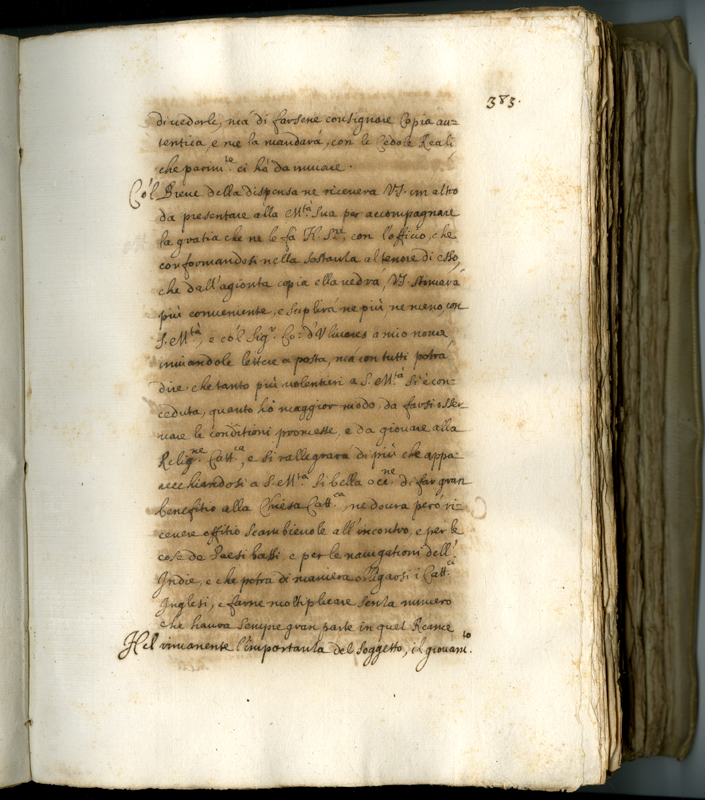 383.
di uederle, ma di farsene consignare Copia au=
tentica, e me la mandarà, con le Cedole Reali
che parim.te ci hà da inuiare.
Co'l Breue della dispensa ne riceuerà V.S. un altro
da presentare alla M.tà Sua per accompagnare
la gratia che ne le fà N. S.re, con l'officio, che
conformandosi nella sostanza al tenore di esso,
che dall'agionta copia ella uedrà, V.S. stimarà
più conueniente, e suplirà ne più ne meno con
S. M.tà, e co'l Sig.r Co: d'Oliuares a mio nome,
inuiandole lettere a posta, ma con tutti potrà
dire che tanto più uolentieri a S. M.tà si è con=
ceduta, quanto hò maggior modo da farsi osser
uare le conditioni promesse, e da giouare alla
Relig.ne Catt.ca, e si rallegrarà di più che appa=
recchiandosi a S. M.tà si bella occ.ne di far gran
benefitio alla Chiesa Catt.ca, ne dourà però ri=
ceuere offitio scambieuole all'incontro, e per le
cose de Paesi bassi, e per le nauigationi dell'
Indie, e che potrà di maniera obligarsi i Catt.ci
Inglesi, e farne moltiplicare senza numero
che haurà sempre gran parte in quel Reame
Nel rimanente l'importanza del soggetto, il giouam.to